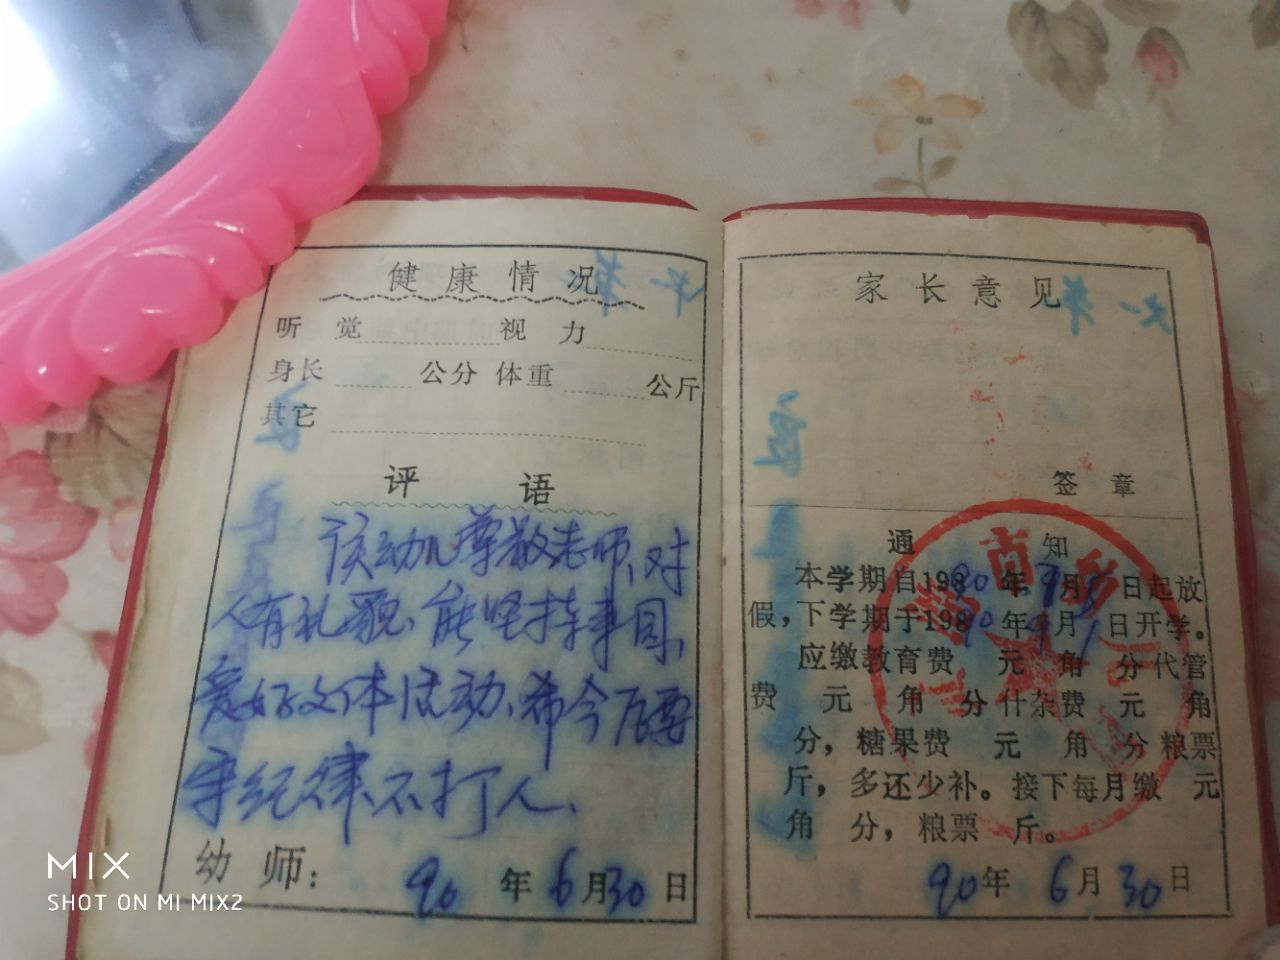 健康情况
听觉 视力
身长 公分 体重 公斤
其它
评语
该幼儿尊敬老师、对
人有礼貌、能坚持来园、
爱好文体活动、希今后要
守纪律、不打人、
幼师： 90年6月30日
家长意见
签章
通知
本学期自198 90年 月 日起放
假，下学期于198 90年9月1日开学。
应缴教育费 元 角 分代管
费 元 角 分什杂费 元 角
分，糖果费 元 角 分粮票
斤，多还少补。接下每月缴 元
角 分，粮票 斤。
90年6月30日
MIX
SHOT ON MI MIX2